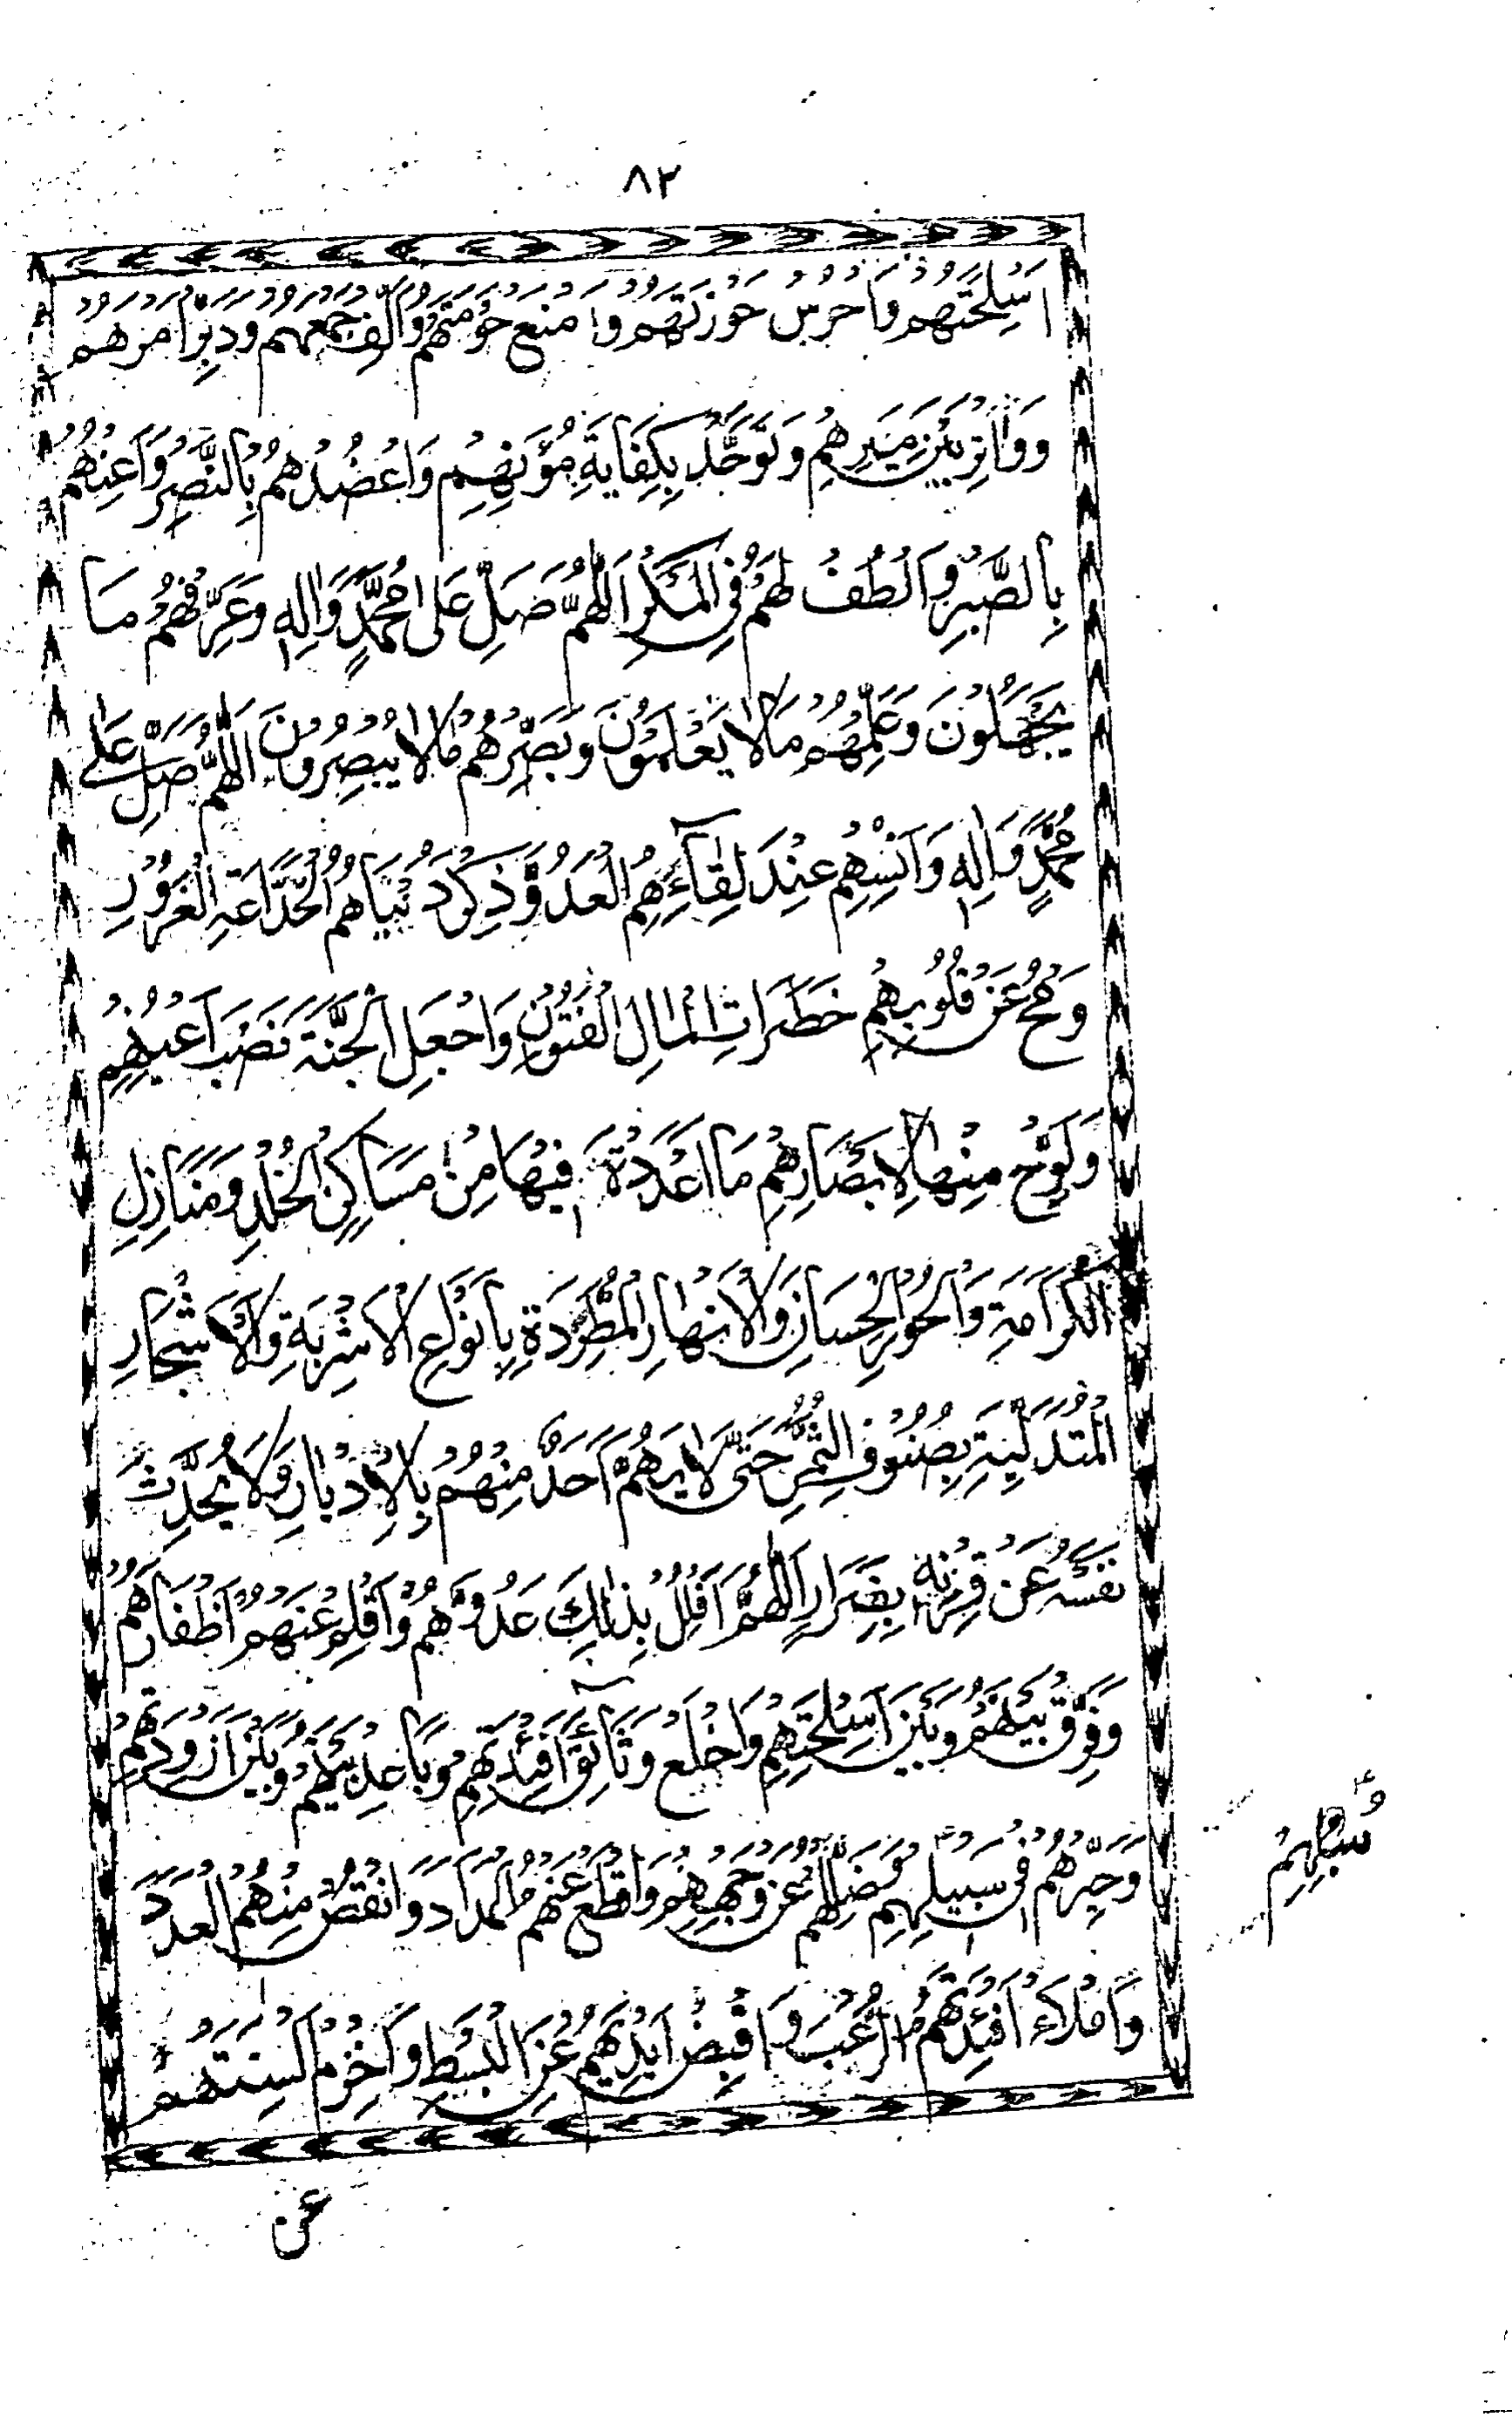 ٨٢
اَسْلِحَتَهُمْ وَاحْرُسْ حَوْزَتَهُمْ وَامْنَعْ حَوْمَتَهُمْ وَاَلِّفْ جَمْعَهُمْ وَدَبِّرْ اَمْرَهُمْ
وَوَاتِرْ بَيْنَ مِيَرِهِمْ وَتَوَحَّدْ بِكِفَايَةِ مُؤَنِهِمْ وَاعْضُدْهُمْ بِالنَّصْرِ وَاَعِنْهُمْ
بِالصَّبْرِ وَالْطُفْ لَهُمْ فِى الْمَكْرِ اَللّٰهُمَّ صَلِّ عَلٰى مُحَمَّدٍ وَّاٰلِهٖ وَعَرِّفْهُمْ مَا
يَجْهَلُوْنَ وَعَلِّمْهُمْ مَالَا يَعْلَمُوْنَ وَبَصِّرْهُمْ مَالَا يُبْصِرُوْنَ اَللّٰهُمَّ صَلِّ عَلٰى
مُحَمَّدٍ وَّاٰلِهٖ وَاَنْسِهِمْ عِنْدَ لِقَآءِهِمُ الْعَدُوَّ ذِكْرَ دُنْيَاهُمُ الْخَدَّاعَةِ الْغَرُوْرِ
وَامْحُ عَنْ قُلُوْبِهِمْ خَطَرَاتِ الْمَالِ الْفَتُوْنِ وَاجْعَلِ الْجَنَّةَ نَصْبَ اَعْيُنِهِمْ
وَلَوِّحْ مِنْهَا لِاَبْصَارِهِمْ مَا اَعْدَدْتَ فِيْهَا مِنْ مَسَاكِنِ الْخُلْدِ وَمَنَازِلِ
الْكَرَامَةِ وَالْحُوْرِ الْحِسَانِ وَالْاَنْهَارِ الْمُطَّرِدَةِ بِاَنْوَاعِ الْاَشْرِبَةِ وَالْاَشْجَارِ
الْمُتَدَلِّيَةِ بِصُنُوْفِ الثَّمَرِ حَتّٰى لَا يَهُمَّ اَحَدٌ مِنْهُمْ بِالْاِدْبَارِ وَلَا يُحَدِّثَ
نَفْسَهٗ عَنْ قِرْنِهٖ بِفِرَارٍ اَللّٰهُمَّ افْلُلْ بِذٰلِكَ عَدُوَّهُمْ وَاقْلِمْ عَنْهُمْ اَظْفَارَهُمْ
وَفَرِّقْ بَيْنَهُمْ وَبَيْنَ اَسْلِحَتِهِمْ وَاخْلَعْ وَثَآئِقَ اَفْئِدَتِهِمْ وَبَاعِدْ بَيْنَهُمْ وَبَيْنَ اَزْوِدَتِهِمْ
وَحَيِّرْهُمْ فِىْ سَبِيْلِهِمْ وَضَلِّلْهُمْ عَنْ وَجْهِهِمْ وَاقْطَعْ عَنْهُمُ الْمَدَدَ وَانْقُصْ مِنْهُمُ الْعَدَدَ
سُبُلِهِمْ
وَامْلَاءْ اَفْئِدَتَهُمُ الرُّعْبَ وَاقْبِضْ اَيْدِيَهُمْ عَنِ الْبَسْطِ وَاخْزِمْ اَلْسِنَتَهُمْ
عن